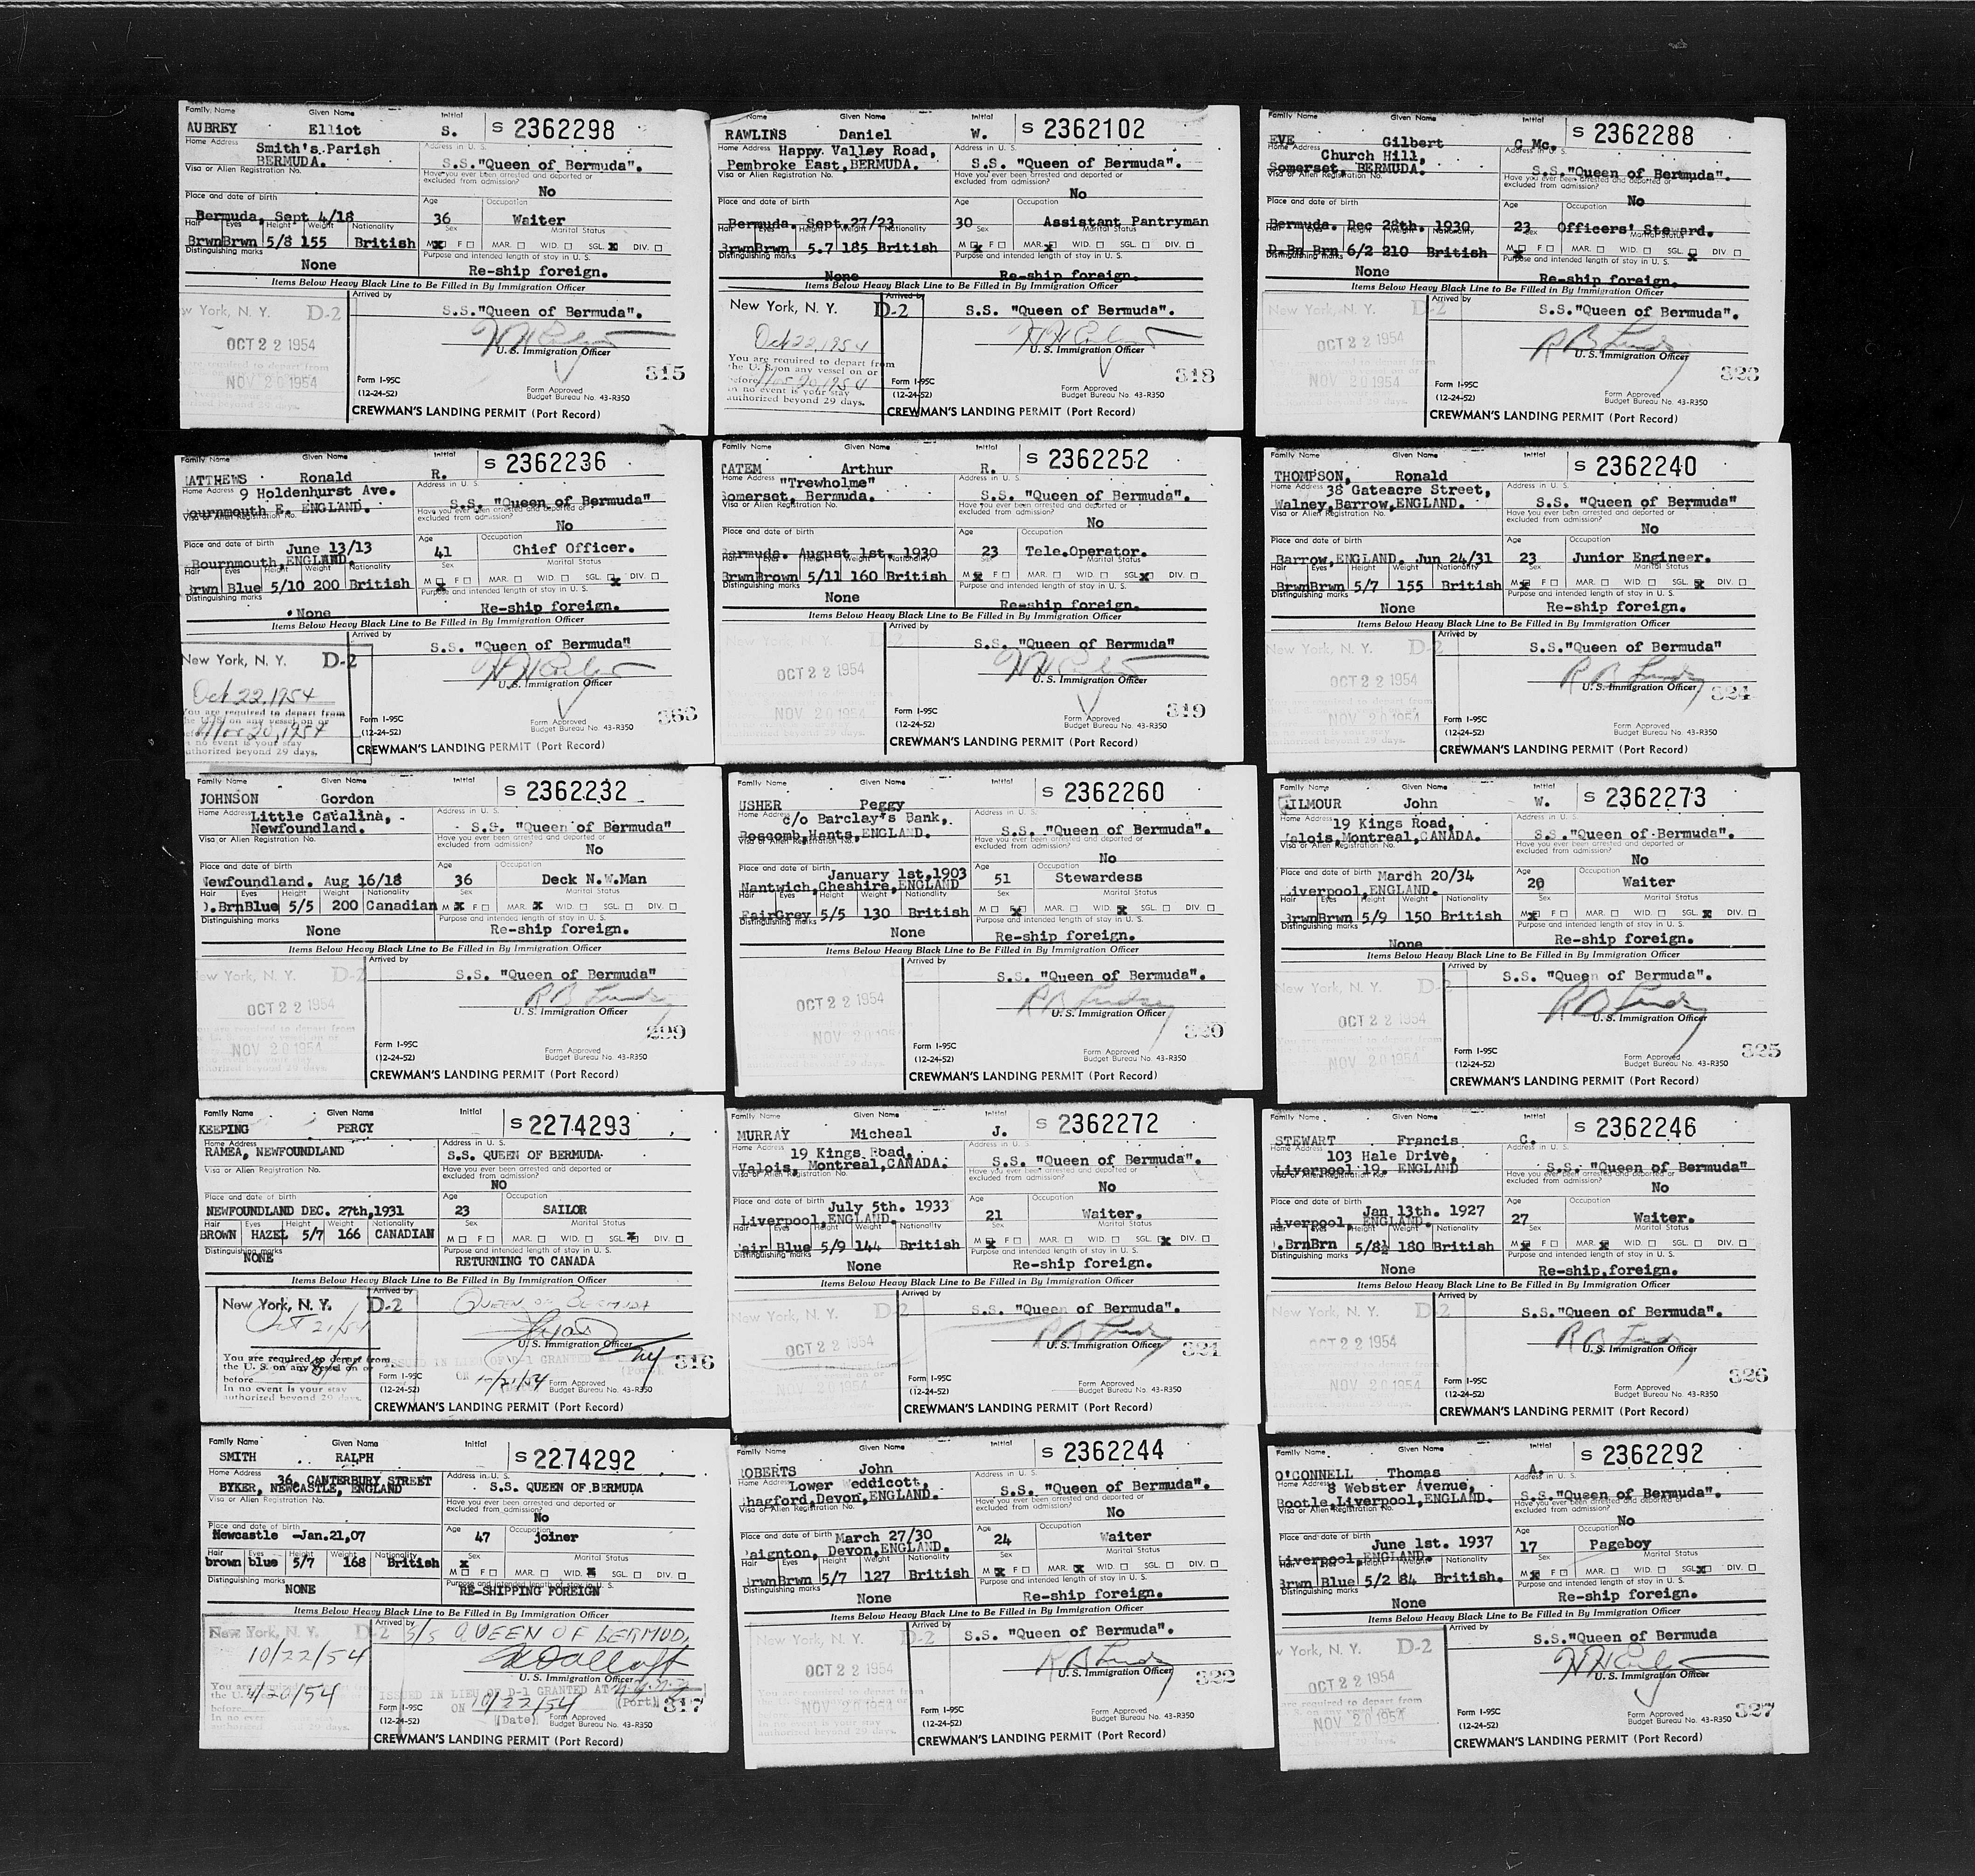 Family Name Given Name Initial S 2362298
AUBREY Elliot S.
Home Address Smith's Parish Address in U. S.
BERMUDA. S.S."Queen of Bermuda".
Visa or Alien Registration No. Have you ever been arrested and deported or excluded from admission?
No
Place and date of birth Age Occupation
Bermuda, Sept 4/18 36 Waiter
Hair Eyes Height Weight Nationality Sex Marital Status
Brwn Brwn 5/8 155 British M F MAR. WID. SGL. DIV.
Distinguishing marks Purpose and intended length of stay in U. S.
None Re-ship foreign.
Items Below Heavy Black Line to Be Filled in By Immigration Officer
Arrived by
w York, N. Y. D-2 S.S."Queen of Bermuda".
OCT 22 1954 U. S. Immigration Officer
NOV 20 1954 Form I-95C Form Approved 315
(12-24-52) Budget Bureau No. 43-R350
CREWMAN'S LANDING PERMIT (Port Record)
Name Given Name Initial S 2362102
RAWLINS Daniel W.
Home Address Happy Valley Road, Address in U. S.
Pembroke East, BERMUDA. S.S. "Queen of Bermuda".
Visa or Alien Registration No. Have you ever been arrested and deported or excluded from admission?
No
Place and date of birth Age Occupation
Bermuda. Sept. 27/23 30 Assistant Pantryman
Hair Eyes Height Weight Nationality Sex Marital Status
BrwnBrwn 5.7 185 British M F MAR. WID. SGL. DIV.
Distinguishing marks Purpose and intended length of stay in U. S.
None Re-ship foreign.
Items Below Heavy Black Line to Be Filled in By Immigration Officer
Arrived by
New York, N. Y. D-2 S.S. "Queen of Bermuda".
Oct 22, 1954 U. S. Immigration Officer
You are required to depart from
the U. S. on any vessel on or
before Nov 20, 1954 Form I-95C 318
in no event is your stay (12-24-52) Form Approved
authorized beyond 29 days. Budget Bureau No. 43-R350
CREWMAN'S LANDING PERMIT (Port Record)
Family Name Given Name Initial S 2362288
EVE Gilbert C Mc.
Home Address Church Hill, Address in U. S.
Somerset, BERMUDA. S.S."Queen of Bermuda".
Visa or Alien Registration No. Have you ever been arrested and deported or excluded from admission?
No
Place and date of birth Age Occupation
Bermuda. Dec 28th. 1930 23 Officers' Steward.
Sex Marital Status
D.Bn Brn 6/2 210 British M F MAR. WID. SGL. DIV.
Distinguishing marks Purpose and intended length of stay in U. S.
None Re-ship foreign.
Items Below Heavy Black Line to Be Filled in By Immigration Officer
Arrived by
New York, N. Y. D-2 S.S."Queen of Bermuda".
OCT 22 1954 U. S. Immigration Officer
NOV 20 1954 Form I-95C 323
(12-24-52) Form Approved Budget Bureau No. 43-R350
CREWMAN'S LANDING PERMIT (Port Record)
Family Name Given Name Initial S 2362236
MATTHEWS Ronald R.
Home Address 9 Holdenhurst Ave. Address in U. S.
ournmouth E. ENGLAND. S.S. "Queen of Bermuda"
Visa or Alien Registration No. Have you ever been arrested and deported or excluded from admission?
No
Place and date of birth June 13/13 Age Occupation
Bournmouth, ENGLAND. 41 Chief Officer.
Hair Eyes Height Weight Nationality Sex Marital Status
Brwn Blue 5/10 200 British M F MAR. WID. SGL. DIV.
Distinguishing marks Purpose and intended length of stay in U. S.
None Re-ship foreign.
Items Below Heavy Black Line to Be Filled in By Immigration Officer
Arrived by
New York, N. Y. D-2 S.S. "Queen of Bermuda"
Oct 22, 1954 U. S. Immigration Officer
You are required to depart from
the U.S. on any vessel on or Form I-95C 363
Nov 20, 1954 (12-24-52) Form Approved
n no event is your stay Budget Bureau No. 43-R350
uthorized beyond 29 days. CREWMAN'S LANDING PERMIT (Port Record)
Family Name Given Name Initial S 2362252
TATEM Arthur R.
Home Address "Trewholme" Address in U. S.
Somerset, Bermuda. S.S. "Queen of Bermuda".
Visa or Alien Registration No. Have you ever been arrested and deported or excluded from admission?
No
Place and date of birth Age Occupation
Bermuda. August 1st. 1930 23 Tele.Operator.
Hair Eyes Height Weight Nationality Sex Marital Status
BrwnBrown 5/11 160 British M F MAR. WID. SGL. DIV.
Distinguishing marks Purpose and intended length of stay in U. S.
None Re-ship foreign.
Items Below Heavy Black Line to Be Filled in By Immigration Officer
Arrived by
S.S. "Queen of Bermuda"
OCT 22 1954 U. S. Immigration Officer
NOV 20 1954 Form I-95C 319
(12-24-52) Form Approved Budget Bureau No. 43-R350
CREWMAN'S LANDING PERMIT (Port Record)
Family Name Given Name Initial S 2362240
THOMPSON, Ronald
Home Address 38 Gateacre Street, Address in U. S.
Walney, Barrow, ENGLAND. S.S. "Queen of Bermuda"
Visa or Alien Registration No. Have you ever been arrested and deported or excluded from admission?
No
Place and date of birth Age Occupation
Barrow, ENGLAND. Jun 24/31 23 Junior Engineer.
Hair Eyes Height Weight Nationality Sex Marital Status
BrwnBrwn 5/7 155 British M F MAR. WID. SGL. DIV.
Distinguishing marks Purpose and intended length of stay in U. S.
None Re-ship foreign.
Items Below Heavy Black Line to Be Filled in By Immigration Officer
Arrived by
New York, N. Y. D-2 S.S."Queen of Bermuda"
OCT 22 1954 U. S. Immigration Officer 324
NOV 20 1954 Form I-95C
(12-24-52) Form Approved Budget Bureau No. 43-R350
CREWMAN'S LANDING PERMIT (Port Record)
Family Name Given Name Initial S 2362232
JOHNSON Gordon
Home Address Little Catalina, Address in U. S.
Newfoundland. S.S. "Queen of Bermuda"
Visa or Alien Registration No. Have you ever been arrested and deported or excluded from admission?
No
Place and date of birth Age Occupation
Newfoundland. Aug 16/18 36 Deck N.W.Man
Hair Eyes Height Weight Nationality Sex Marital Status
D.BrnBlue 5/5 200 Canadian M F MAR. WID. SGL. DIV.
Distinguishing marks Purpose and intended length of stay in U. S.
None Re-ship foreign.
Items Below Heavy Black Line to Be Filled in By Immigration Officer
Arrived by
New York, N. Y. D-2 S.S. "Queen of Bermuda"
OCT 22 1954 U. S. Immigration Officer
you are required to depart from 299
NOV 20 1954 Form I-95C
(12-24-52) Form Approved Budget Bureau No. 43-R350
CREWMAN'S LANDING PERMIT (Port Record)
Family Name Given Name Initial S 2362260
USHER Peggy
Home Address c/o Barclay's Bank, Address in U. S.
Boscomb, Hants, ENGLAND. S.S. "Queen of Bermuda".
Visa or Alien Registration No. Have you ever been arrested and deported or excluded from admission?
No
Place and date of birth January 1st, 1903 Age Occupation
Nantwich, Cheshire, ENGLAND 51 Stewardess
Hair Eyes Height Weight Nationality Sex Marital Status
FairGrey 5/5 130 British M F MAR. WID. SGL. DIV.
Distinguishing marks Purpose and intended length of stay in U. S.
None Re-ship foreign.
Items Below Heavy Black Line to Be Filled in By Immigration Officer
Arrived by
S.S. "Queen of Bermuda".
OCT 22 1954 U. S. Immigration Officer
NOV 20 195 320
Form I-95C (12-24-52) Form Approved Budget Bureau No. 43-R350
CREWMAN'S LANDING PERMIT (Port Record)
Family Name Given Name Initial S 2362273
GILMOUR John W.
Home Address 19 Kings Road, Address in U. S.
Valois, Montreal, CANADA. S.S. "Queen of Bermuda".
Visa or Alien Registration No. Have you ever been arrested and deported or excluded from admission?
No
Place and date of birth March 20/34 Age Occupation
Liverpool, ENGLAND. 20 Waiter
Hair Eyes Height Weight Nationality Sex Marital Status
BrwnBrwn 5/9 150 British M F MAR. WID. SGL. DIV.
Distinguishing marks Purpose and intended length of stay in U. S.
None Re-ship foreign.
Items Below Heavy Black Line to Be Filled in By Immigration Officer
Arrived by
New York, N. Y. D-2 S.S. "Queen of Bermuda".
OCT 22 1954 U. S. Immigration Officer
NOV 20 1954 Form I-95C 325
(12-24-52) Form Approved Budget Bureau No. 43-R350
CREWMAN'S LANDING PERMIT (Port Record)
Family Name Given Name Initial S 2274293
KEEPING PERCY
Home Address Address in U. S.
RAMEA, NEWFOUNDLAND S.S. QUEEN OF BERMUDA
Visa or Alien Registration No. Have you ever been arrested and deported or excluded from admission?
NO
Place and date of birth Age Occupation
NEWFOUNDLAND DEC. 27th,1931 23 SAILOR
Hair Eyes Height Weight Nationality Sex Marital Status
BROWN HAZEL 5/7 166 CANADIAN M F MAR. WID. SGL. DIV.
Distinguishing marks Purpose and intended length of stay in U. S.
NONE RETURNING TO CANADA
Items Below Heavy Black Line to Be Filled in By Immigration Officer
Arrived by
New York, N. Y. D-2 QUEEN OF BERMUDA
Oct 21/54 U. S. Immigration Officer
You are required to depart from ISSUED IN LIEU OF D-1 GRANTED AT NY 316
the U. S. on any vessel on or (Port)
before Form I-95C ON
In no event is your stay (12-24-52) Form Approved
authorized beyond 29 days. Budget Bureau No. 43-R350
CREWMAN'S LANDING PERMIT (Port Record)
Family Name Given Name Initial S 2362272
MURRAY Micheal J.
Home Address 19 Kings Road, Address in U. S.
Valois, Montreal, CANADA. S.S. "Queen of Bermuda".
Visa or Alien Registration No. Have you ever been arrested and deported or excluded from admission?
No
Place and date of birth July 5th. 1933 Age Occupation
Liverpool, ENGLAND. 21 Waiter.
Hair Eyes Height Weight Nationality Sex Marital Status
Fair Blue 5/9 144 British M F MAR. WID. SGL. DIV.
Distinguishing marks Purpose and intended length of stay in U. S.
None Re-ship foreign.
Items Below Heavy Black Line to Be Filled in By Immigration Officer
Arrived by
New York, N. Y. D-2 S.S. "Queen of Bermuda".
OCT 22 1954 U. S. Immigration Officer 321
NOV 20 1954 Form I-95C
(12-24-52) Form Approved Budget Bureau No. 43-R350
CREWMAN'S LANDING PERMIT (Port Record)
Family Name Given Name Initial S 2362246
STEWART Francis C.
Home Address 103 Hale Drive, Address in U. S.
Liverpool 19. ENGLAND S.S. "Queen of Bermuda"
Visa or Alien Registration No. Have you ever been arrested and deported or excluded from admission?
No
Place and date of birth Jan 13th. 1927 Age Occupation
iverpool, ENGLAND. 27 Waiter.
Hair Eyes Height Weight Nationality Sex Marital Status
.BrnBrn 5/8½ 180 British M F MAR. WID. SGL. DIV.
Distinguishing marks Purpose and intended length of stay in U. S.
None Re-ship foreign.
Items Below Heavy Black Line to Be Filled in By Immigration Officer
Arrived by
New York, N. Y. D-2 S.S."Queen of Bermuda".
OCT 22 1954 U. S. Immigration Officer
NOV 20 1954 Form I-95C 326
(12-24-52) Form Approved Budget Bureau No. 43-R350
CREWMAN'S LANDING PERMIT (Port Record)
Family Name Given Name Initial S 2274292
SMITH RALPH
Home Address 36, CANTERBURY STREET Address in U. S.
BYKER, NEWCASTLE, ENGLAND S.S. QUEEN OF BERMUDA
Visa or Alien Registration No. Have you ever been arrested or deported or excluded from admission?
No
Place and date of birth Age Occupation
Newcastle -Jan.21,07 47 joiner
Hair Eyes Height Weight Nationality Sex Marital Status
brown blue 5/7 168 British M F MAR. WID. SGL. DIV.
Distinguishing marks Purpose and intended length of stay in U. S.
NONE RE-SHIPPING FOREIGN
Items Below Heavy Black Line to Be Filled in By Immigration Officer
Arrived by
New York, N. Y. D-2 S/S QUEEN OF BERMUD,
10/22/54 U. S. Immigration Officer
ISSUED IN LIEU OF D-1 GRANTED AT
11/20/54 ON 10/22/54 (Port) 317
Form I-95C (Date) Form Approved
(12-24-52) Budget Bureau No. 43-R350
CREWMAN'S LANDING PERMIT (Port Record)
Family Name Given Name Initial S 2362244
ROBERTS John
Home Address Lower eddicott, Address in U. S.
hagford, Devon, ENGLAND. S.S. "Queen of Bermuda".
Visa or Alien Registration No. Have you ever been arrested and deported or excluded from admission?
No
Place and date of birth March 27/30 Age Occupation
Paignton, Devon, ENGLAND. 24 Waiter
Hair Eyes Height Weight Nationality Sex Marital Status
BrwnBrwn 5/7 127 British M F MAR. WID. SGL. DIV.
Distinguishing marks Purpose and intended length of stay in U. S.
None Re-ship foreign.
Items Below Heavy Black Line to Be Filled in By Immigration Officer
Arrived by
New York, N. Y. D-2 S.S. "Queen of Bermuda".
OCT 22 1954 U. S. Immigration Officer 322
NOV 20 1954 Form I-95C
(12-24-52) Form Approved Budget Bureau No. 43-R350
CREWMAN'S LANDING PERMIT (Port Record)
Family Name Given Name Initial S 2362292
O'CONNELL Thomas A.
Home Address 8 Webster Avenue, Address in U. S.
Bootle, Liverpool, ENGLAND. S.S."Queen of Bermuda".
Visa or Alien Registration No. Have you ever been arrested and deported or excluded from admission?
No
Place and date of birth June 1st. 1937 Age Occupation
Liverpool, ENGLAND. 17 Pageboy
Sex Marital Status
Brwn Blue 5/2 84 British. M F MAR. WID. SGL. DIV.
Distinguishing marks Purpose and intended length of stay in U. S.
None Re-ship foreign.
Items Below Heavy Black Line to Be Filled in By Immigration Officer
Arrived by
w York, N. Y. D-2 S.S."Queen of Bermuda
OCT 22 1954 U. S. Immigration Officer
are required to depart from
NOV 20 1954 Form I-95C 327
(12-24-52) Form Approved Budget Bureau No. 43-R350
CREWMAN'S LANDING PERMIT (Port Record)